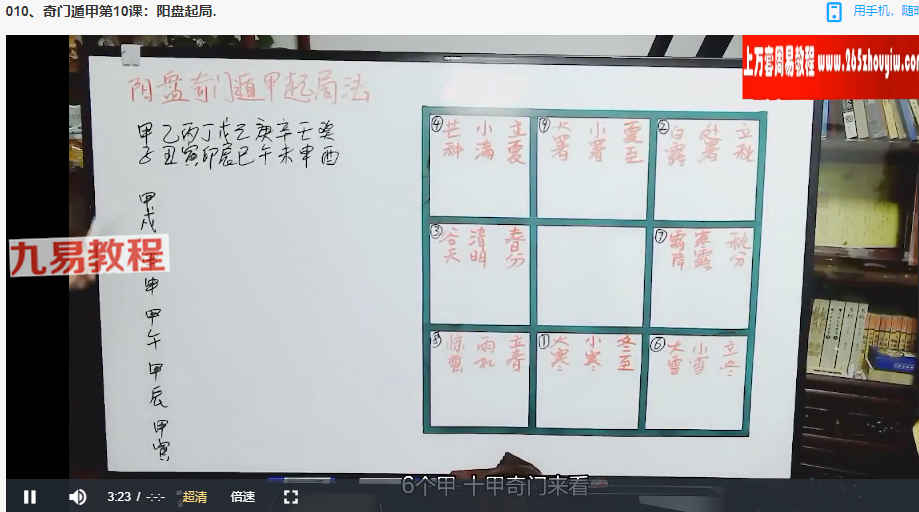 010、奇门遁甲第10课：阳盘起局.
用手机，随
上万套周易教程 www.265zhouyiw.com
阴盘奇门遁甲起局法
甲乙丙丁戊己庚辛壬癸
子丑寅卯辰巳午未申酉
甲戌
申
甲午
甲辰
甲寅
九易教程
④ 芒种 小满 立夏
⑨ 大暑 小暑 夏至
② 白露 处暑 立秋
③ 谷天 清明 春分
⑦ 霜降 寒露 秋分
⑧ 惊蛰 雨水 立春
① 大寒 小寒 冬至
⑥ 大雪 小雪 立冬
6个甲 十甲奇门来看
3:23 / -:-
超清
倍速